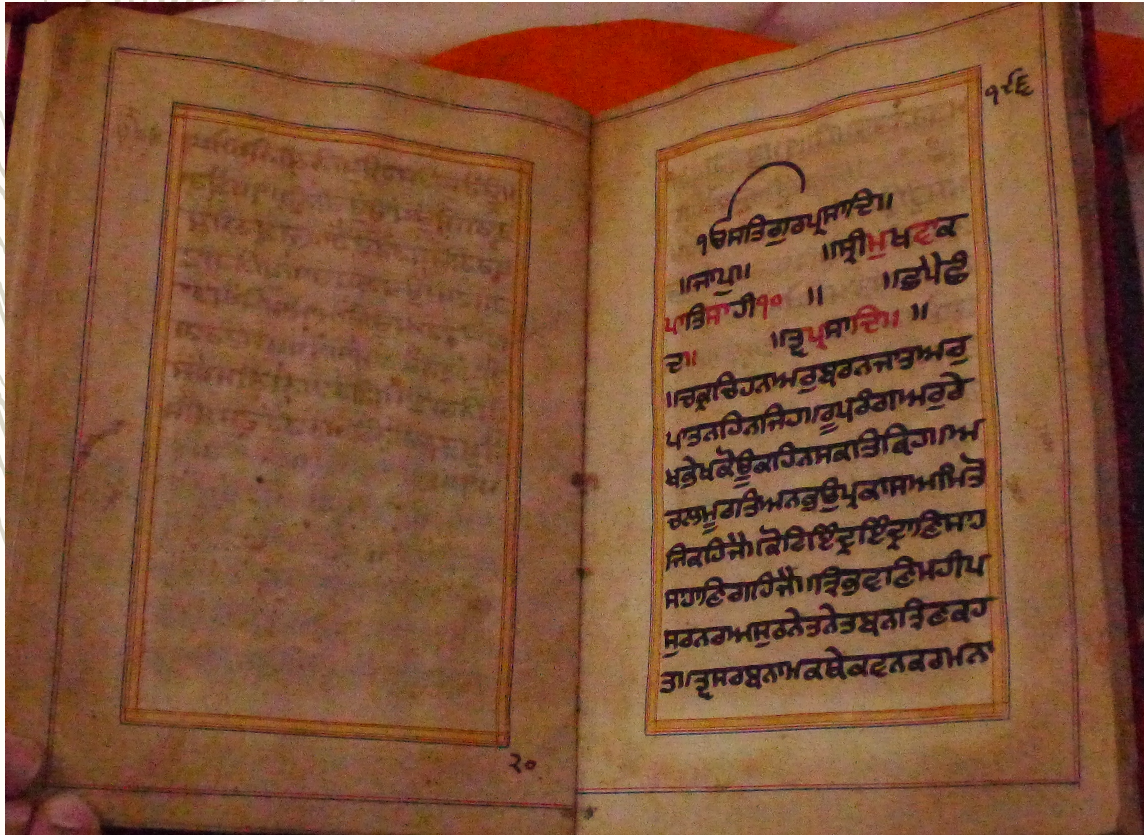 ੨੦
੧੯੬
੧ੴਸਤਿਗੁਰਪ੍ਰਸਾਦਿ॥
॥ਜਾਪੁ॥ ॥ਸ੍ਰੀਮੁਖਵਾਕ
ਪਾਤਿਸਾਹੀ੧੦ ॥ ॥ਛਪੈਛੰ
ਦ॥ ॥ਤ੍ਵਪ੍ਰਸਾਦਿ॥ ॥
॥ਚਕ੍ਰਚਿਹਨਅਰੁਬਰਨਜਾਤਅਰੁ
ਪਾਤਨਹਿਨਜਿਹ॥ਰੂਪਰੰਗਅਰੁਰੇ
ਖਭੇਖਕੋਊਕਹਿਨਸਕਤਿਕਿਹ॥ਅ
ਚਲਮੂਰਤਿਅਨਭਉਪ੍ਰਕਾਸਅਮਿਤੋ
ਜਿਕਹਿਜੈ॥ਕੋਟਿਇੰਦ੍ਰਇੰਦ੍ਰਾਣਿਸਾਹ
ਸਾਹਾਣਿਗਹਿਜੈ॥ਤ੍ਰਿਭੁਵਾਣਿਮਹੀਪ
ਸੁਰਨਰਅਸੁਰਨੇਤਨੇਤਬਨਤ੍ਰਿਣਕਹ
ਤ॥ਤ੍ਵਸਰਬਨਾਮਕਥੇਕਵਨਕਰਮਨਾ